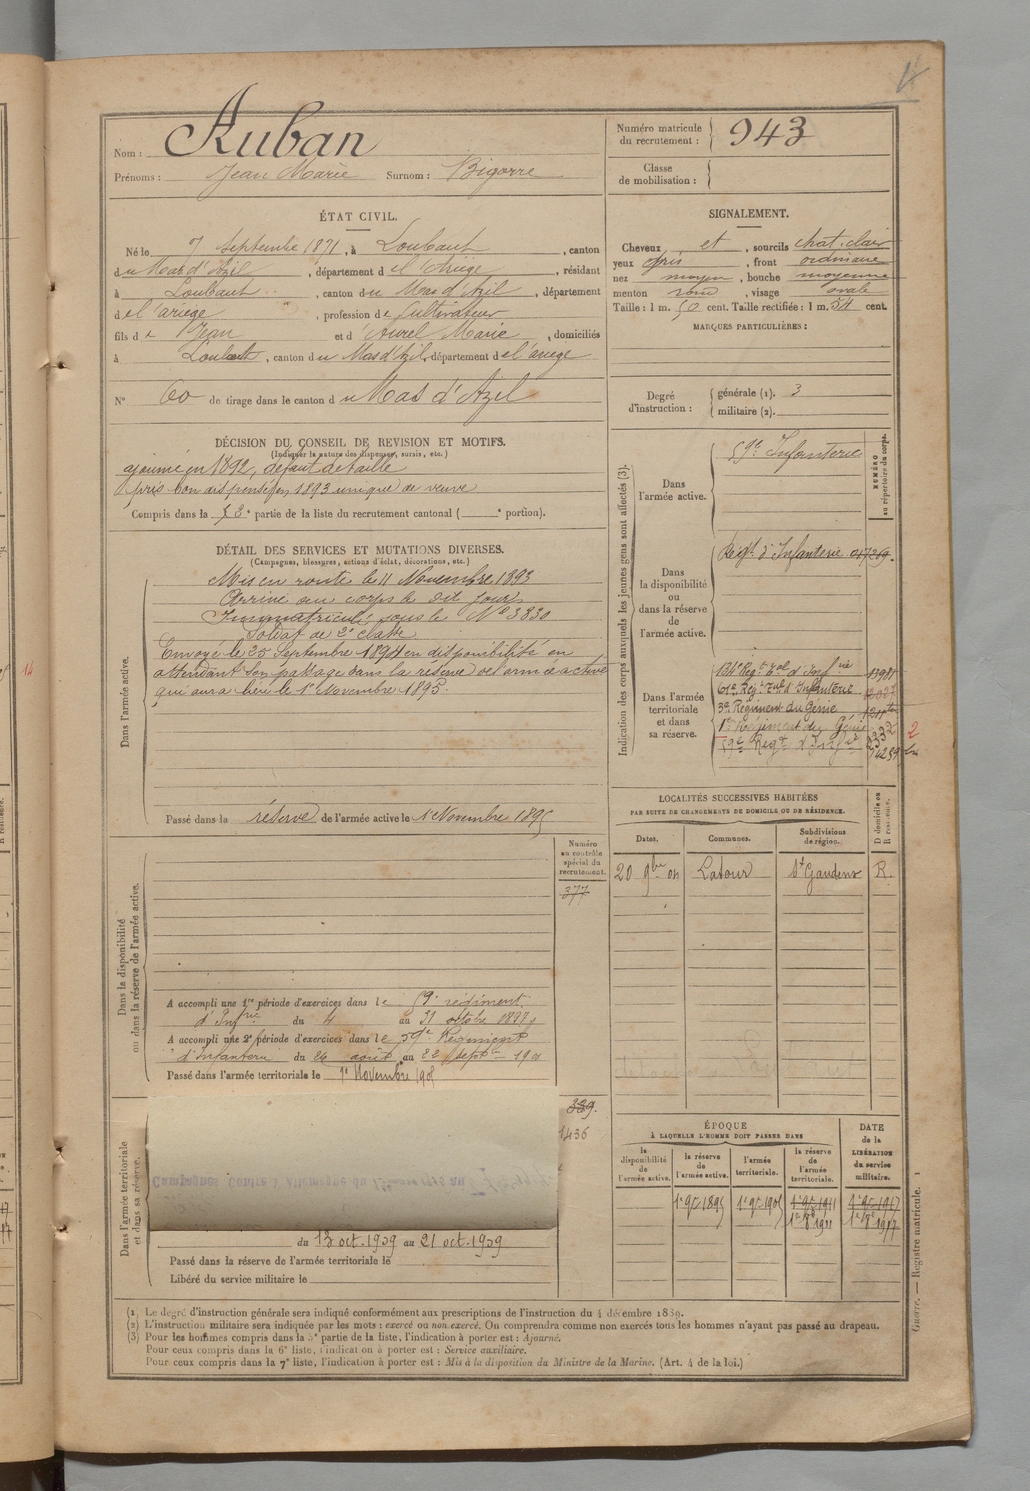 Nom : Auban
Prénoms : Jean Marie Surnom : Bigorre
Numéro matricule du recrutement : 943
Classe de mobilisation :
ÉTAT CIVIL.
Né le 7 Septembre 1871, à Loubaut, canton
du Mas d'Azil, département de l'Ariège, résidant
à Loubaut, canton du Mas d'Azil, département
de l'ariège, profession de Cultivateur
fils de Jean et d'Aurel Marie, domiciliés
à Loubaut, canton du Mas d'Azil, département de l'ariège
N° 60 de tirage dans le canton du Mas d'Azil
SIGNALEMENT.
Cheveux et, sourcils chat. clair
yeux gris, front ordinaire
nez moyen, bouche moyenne
menton rond, visage ovale
Taille : 1 m. 50 cent. Taille rectifiée : 1 m. 54 cent.
MARQUES PARTICULIÈRES :
Degré d'instruction : générale (1). 3
militaire (2).
DÉCISION DU CONSEIL DE REVISION ET MOTIFS.
(Indiquer la nature des dispenses, sursis, etc.)
ajourné en 1892, défaut de taille
pris bon dispensé en 1893 unique de veuve
Compris dans la 3e partie de la liste du recrutement cantonal ( e portion).
DÉTAIL DES SERVICES ET MUTATIONS DIVERSES.
(Campagnes, blessures, actions d'éclat, décorations, etc.)
Dans l'armée active.
Mis en route le 11 Novembre 1893
Arrivé au corps le dit jour
Immatriculé sous le N° 3830
Soldat de 2e classe
Envoyé le 25 Septembre 1894 en disponibilité en
attendant son passage dans la réserve de l'armée active
qui aura lieu le 1er Novembre 1895.
Passé dans la réserve de l'armée active le 1er Novembre 1895
Indication des corps auxquels les jeunes gens sont affectés (3).
NUMÉRO au répertoire du corps.
Dans l'armée active.
59e Infanterie
Dans la disponibilité ou dans la réserve de l'armée active.
Régt. d'Infanterie
Dans l'armée territoriale et dans sa réserve.
134e Régt tal d'Infrie
61e Régt tal d'Infanterie
3e Régiment du Génie
1er Régiment du Génie
59e Régt d'Infie
LOCALITÉS SUCCESSIVES HABITÉES
PAR SUITE DE CHANGEMENTS DE DOMICILE OU DE RÉSIDENCE.
Dates. Communes. Subdivisions de région. D domicile ou R résidence.
20 9bre 04 Latour St Gaudens R.
Dans la disponibilité ou dans la réserve de l'armée active.
Numéro au contrôle spécial du recrutement.
377
A accompli une 1re période d'exercices dans le 59e régiment
d'Infrie du 4 au 31 octobre 1897
A accompli une 2e période d'exercices dans le 59e Régiment
d'Infanterie du 26 août au 22 septre 1901
Passé dans l'armée territoriale le 1er Novembre 1905
Dans l'armée territoriale et dans sa réserve.
339.
1436
Campagnes Contre l'Allemagne du
du 13 oct. 1909 au 21 oct. 1909
Passé dans la réserve de l'armée territoriale le
Libéré du service militaire le
ÉPOQUE
À LAQUELLE L'HOMME DOIT PASSER DANS
la disponibilité de l'armée active. la réserve de l'armée active. l'armée territoriale. la réserve de l'armée territoriale.
DATE de la LIBÉRATION du service militaire.
1er 9bre 1895 1er 9bre 1905 1er 9bre 1911 1er 9bre 1917
1er 8bre 1911 1er 8bre 1917
(1) Le degré d'instruction générale sera indiqué conformément aux prescriptions de l'instruction du 4 décembre 1889.
(2) L'instruction militaire sera indiquée par les mots : exercé ou non exercé. On comprendra comme non exercés tous les hommes n'ayant pas passé au drapeau.
(3) Pour les hommes compris dans la 5e partie de la liste, l'indication à porter est : Ajourné.
Pour ceux compris dans la 6e liste, l'indication à porter est : Service auxiliaire.
Pour ceux compris dans la 7e liste, l'indication à porter est : Mis à la disposition du Ministre de la Marine. (Art. 4 de la loi.)
Guerre. — Registre matricule. 1
14